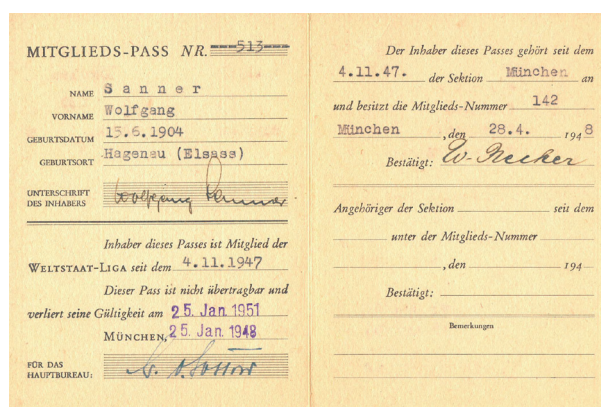 MITGLIEDS-PASS NR. 513
NAME Sanner
VORNAME Wolfgang
GEBURTSDATUM 15.6.1904
GEBURTSORT Hagenau (Elsass)
UNTERSCHRIFT
DES INHABERS Wolfgang Sanner
Inhaber dieses Passes ist Mitglied der
WELTSTAAT-LIGA seit dem 4.11.1947
Dieser Pass ist nicht übertragbar und
verliert seine Gültigkeit am 25. Jan 1951
MÜNCHEN, 25. Jan 1948
FÜR DAS
HAUPTBUREAU:
Der Inhaber dieses Passes gehört seit dem
4.11.47. der Sektion München an
und besitzt die Mitglieds-Nummer 142
München , den 28.4. 1948
Bestätigt: W. Necker
Angehöriger der Sektion seit dem
unter der Mitglieds-Nummer
, den 194
Bestätigt:
Bemerkungen